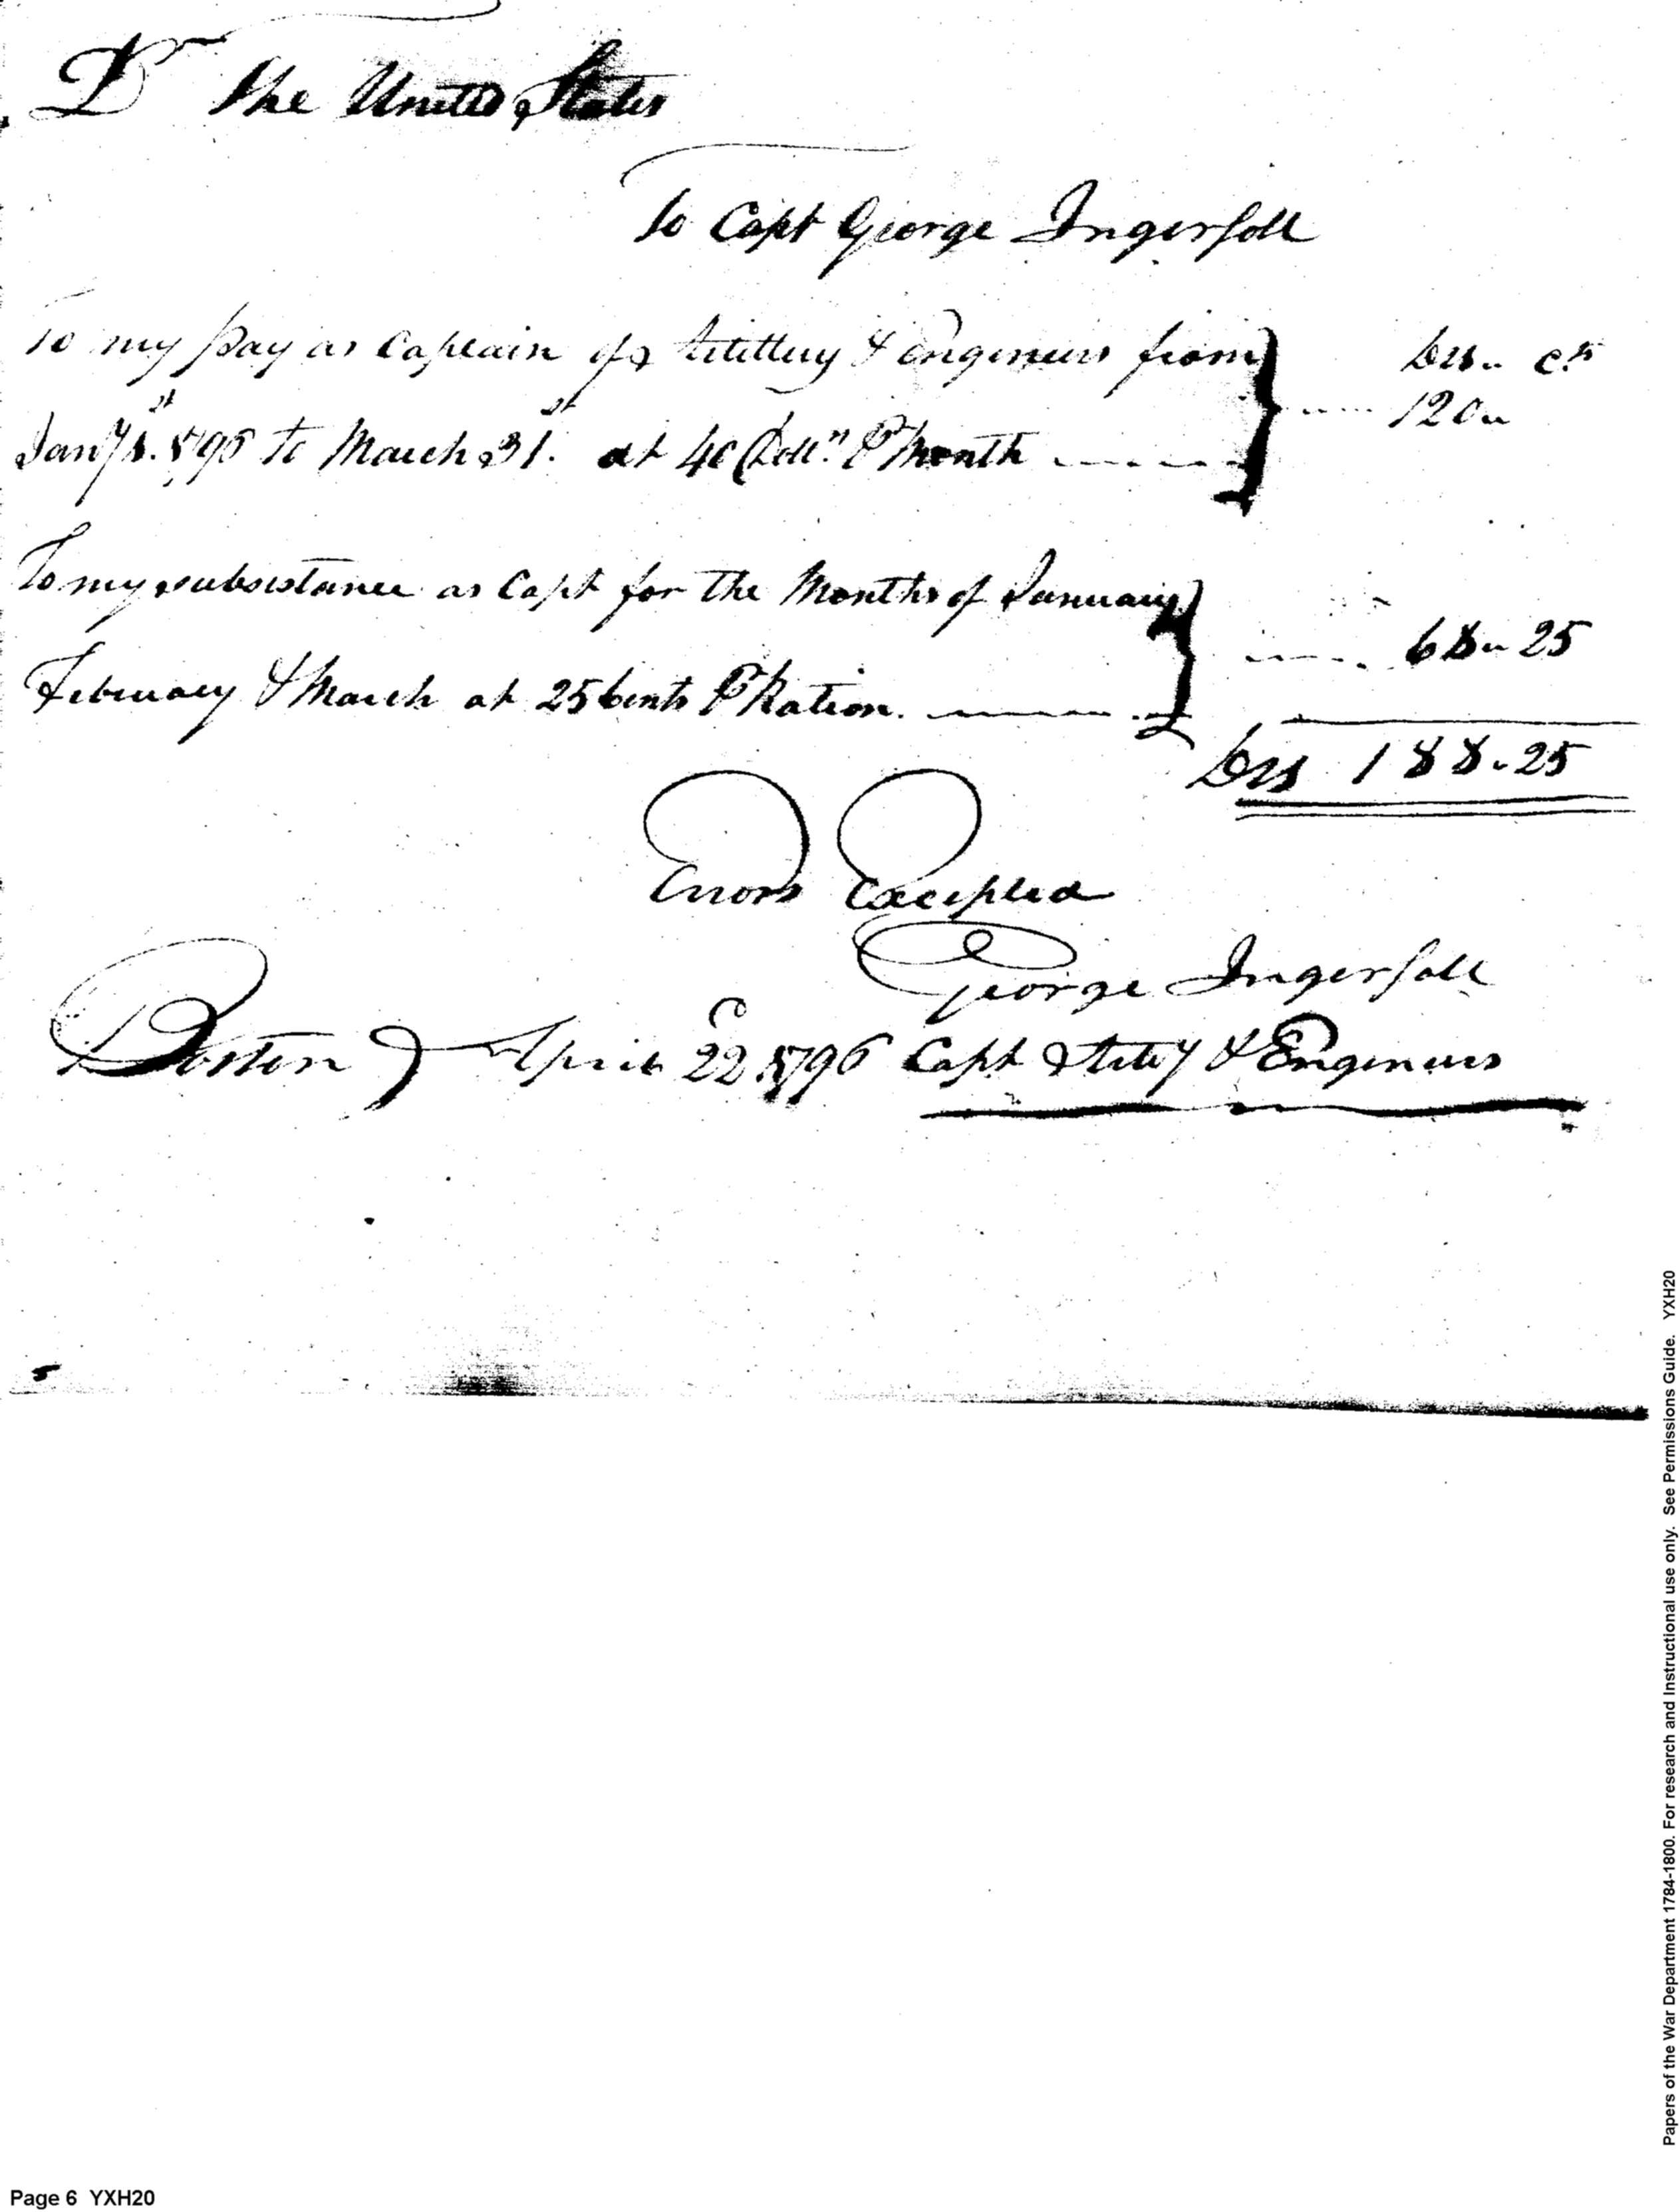 Dr The United States
To Capt George Ingersoll
To my pay as Captain of Artillery & Engineers from
Jany 1st 1796 to March 31st at 40 Dolls P Month
Drs Cts
120
To my subsistance as Capt for the Months of January
February & March at 25 Cents P Ration.
68 25
Drs 188.25
Errors Excepted
George Ingersoll
Boston April 22 1796 Capt Artily & Engineers
Papers of the War Department 1784-1800. For research and Instructional use only. See Permissions Guide. YXH20
Page 6 YXH20